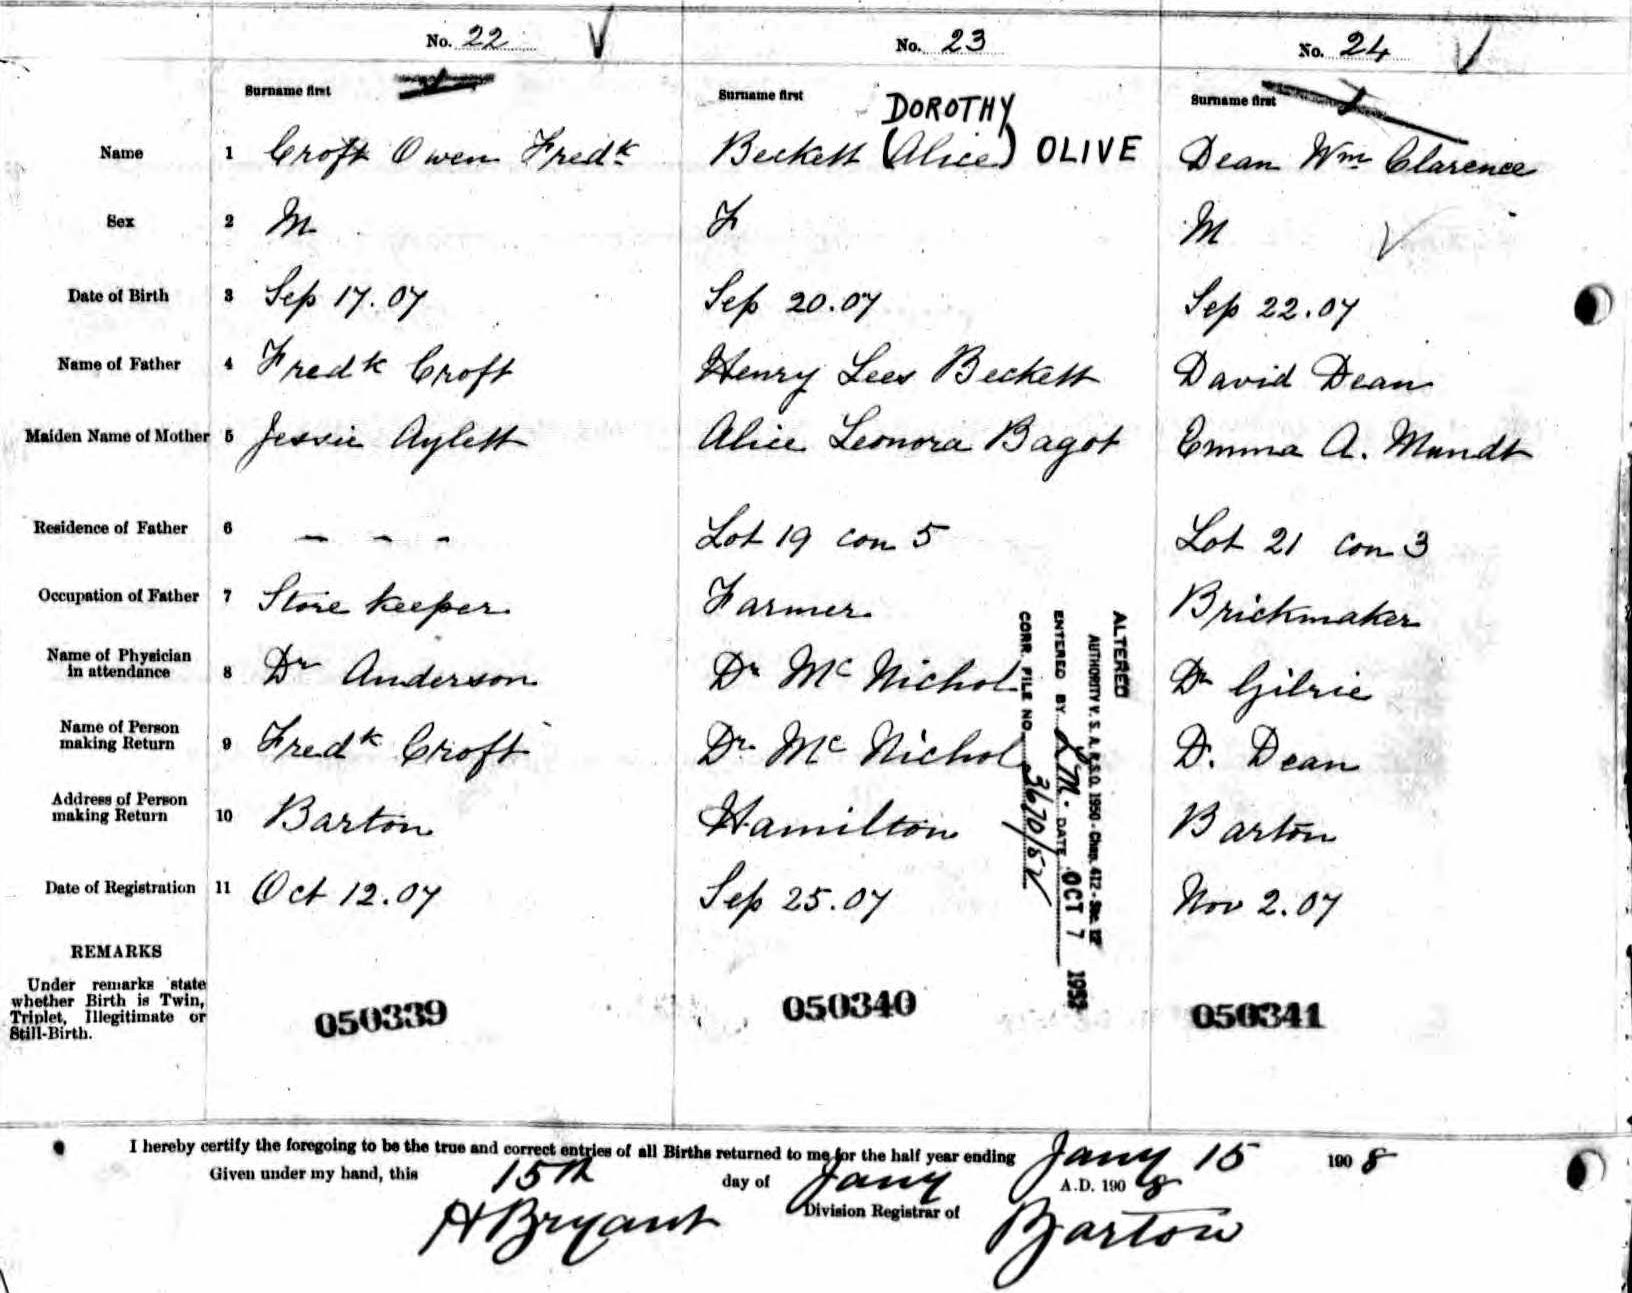 No. 22 No. 23 No. 24
Surname first Surname first Surname first
DOROTHY
Name 1 Croft Owen Fredk Beckett (Alice) OLIVE Dean Wm Clarence
Sex 2 M F M
Date of Birth 3 Sep 17.07 Sep 20.07 Sep 22.07
Name of Father 4 Fredk Croft Henry Lees Beckett David Dean
Maiden Name of Mother 5 Jessie Aylett Alice Leonora Bagot Emma A. Mundt
Residence of Father 6 - - - Lot 19 con 5 Lot 21 con 3
Occupation of Father 7 Store keeper Farmer Brickmaker
Name of Physician in attendance 8 Dr Anderson Dr Mc Nichol Dr Gilrie
Name of Person making Return 9 Fredk Croft Dr. Mc Nichol D. Dean
Address of Person making Return 10 Barton Hamilton Barton
Date of Registration 11 Oct 12.07 Sep 25.07 Nov 2.07
ALTERED
AUTHORITY V. S. A. R.S.O. 1950 - Chap. 412 - Sec.
ENTERED BY M. DATE OCT 7
CORR. FILE NO. 3670/52
REMARKS
Under remarks state
whether Birth is Twin,
Triplet, Illegitimate or
Still-Birth.
050339 050340 050341
I hereby certify the foregoing to be the true and correct entries of all Births returned to me for the half year ending Jany 15 1908
Given under my hand, this 15th day of Jany A.D. 1908
H Bryant Division Registrar of Barton